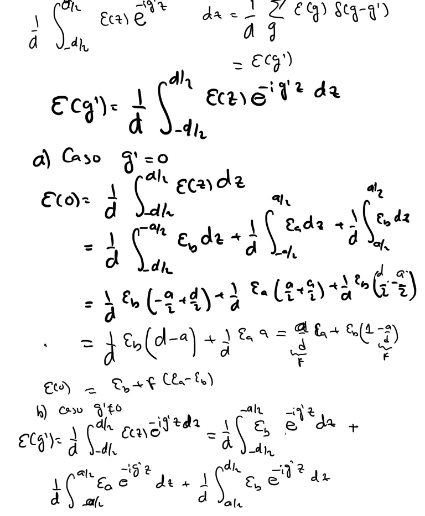 1/d ∫_{-d/2}^{d/2} ε(z) e^{-ig'z} dz = 1/d Σ_g ε(g) δ(g-g')
= ε(g')
ε(g') = 1/d ∫_{-d/2}^{d/2} ε(z) e^{-ig'z} dz
a) Caso g'=0
ε(0) = 1/d ∫_{-d/2}^{d/2} ε(z) dz
= 1/d ∫_{-d/2}^{-a/2} ε_b dz + 1/d ∫_{-a/2}^{a/2} ε_a dz + 1/d ∫_{a/2}^{d/2} ε_b dz
= 1/d ε_b (-a/2 + d/2) + 1/d ε_a (a/2 + a/2) + 1/d ε_b (d/2 - a/2)
= 1/d ε_b (d-a) + 1/d ε_a a = a/d ε_a + ε_b (1 - a/d)
F F
ε(0) = ε_b + f (ε_a - ε_b)
b) caso g'≠0
ε(g') = 1/d ∫_{-d/2}^{d/2} ε(z) e^{-ig'z} dz = 1/d ∫_{-d/2}^{-a/2} ε_b e^{-ig'z} dz +
1/d ∫_{-a/2}^{a/2} ε_a e^{-ig'z} dz + 1/d ∫_{a/2}^{d/2} ε_b e^{-ig'z} dz